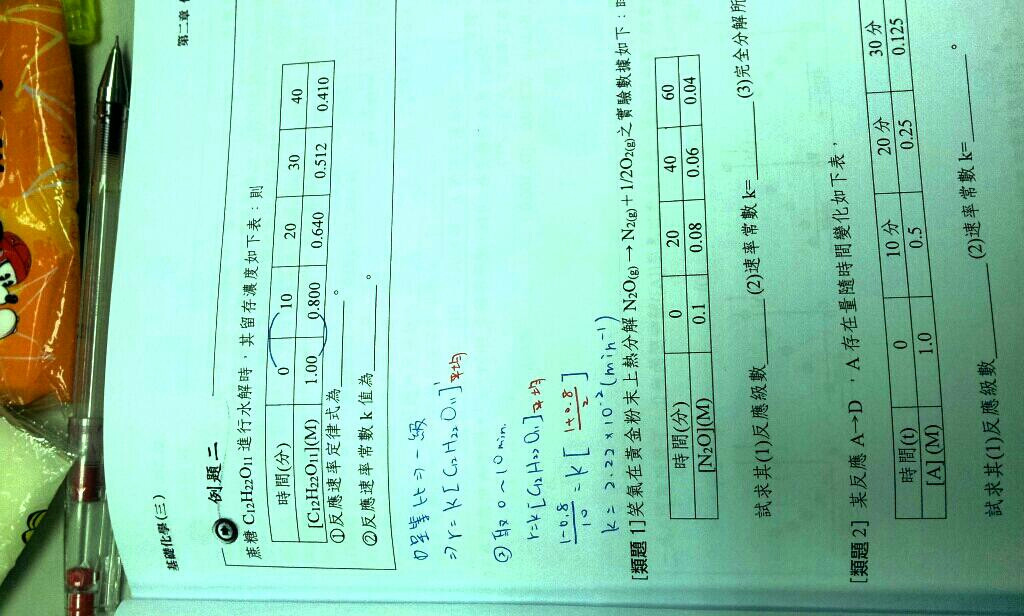 基礎化學(三)
第二章
例題二
蔗糖 C12H22O11 進行水解時，其留存濃度如下表：則
時間(分) 0 10 20 30 40
[C12H22O11](M) 1.00 0.800 0.640 0.512 0.410
①反應速率定律式為________。
②反應速率常數 k 值為________。
①呈等比⇒一級
⇒r=k[C12H22O11]¹平均
②取0~10min
r=k[C12H22O11]平均
1-0.8/10=k[1+0.8/2]
k=2.22×10-2(min-1)
[類題 1] 笑氣在黃金粉末上熱分解 N2O(g)→N2(g)+1/2O2(g)之實驗數據如下：
時間(分) 0 20 40 60
[N2O](M) 0.1 0.08 0.06 0.04
試求其(1)反應級數________(2)速率常數 k=________(3)完全分解所
[類題 2] 某反應 A→D，A 存在量隨時間變化如下表，
時間(t) 0 10 分 20 分 30 分
[A](M) 1.0 0.5 0.25 0.125
試求其(1)反應級數________(2)速率常數 k=________。